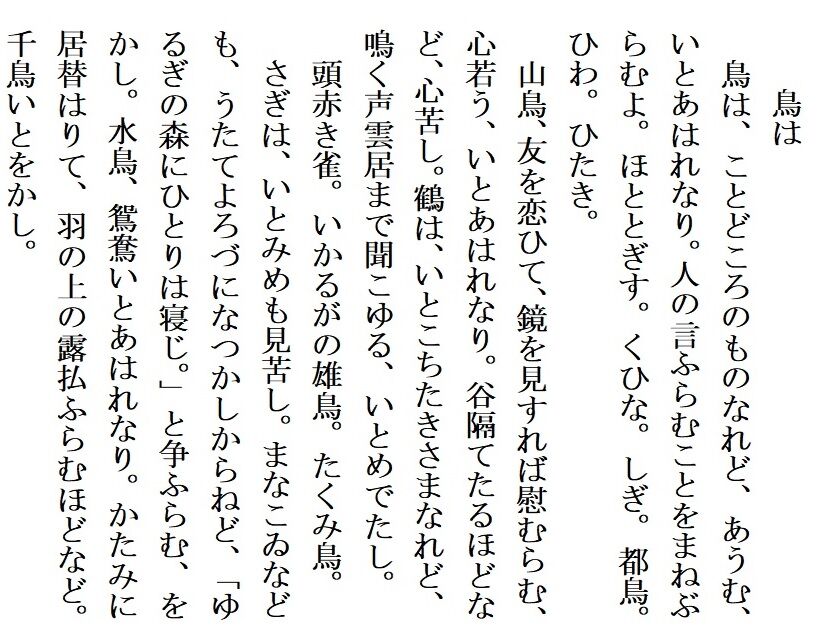 鳥は
鳥は、ことどころのものなれど、あうむ、
いとあはれなり。人の言ふらむことをまねぶ
らむよ。ほととぎす。くひな。しぎ。都鳥。
ひわ。ひたき。
山鳥、友を恋ひて、鏡を見すれば慰むらむ、
心若う、いとあはれなり。谷隔てたるほどな
ど、心苦し。鶴は、いとこちたきさまなれど、
鳴く声雲居まで聞こゆる、いとめでたし。
頭赤き雀。いかるがの雄鳥。たくみ鳥。
さぎは、いとみめも見苦し。まなこゐなど
も、うたてよろづになつかしからねど、「ゆ
るぎの森にひとりは寝じ。」と争ふらむ、を
かし。水鳥、鴛鴦いとあはれなり。かたみに
居替はりて、羽の上の露払ふらむほどなど。
千鳥いとをかし。